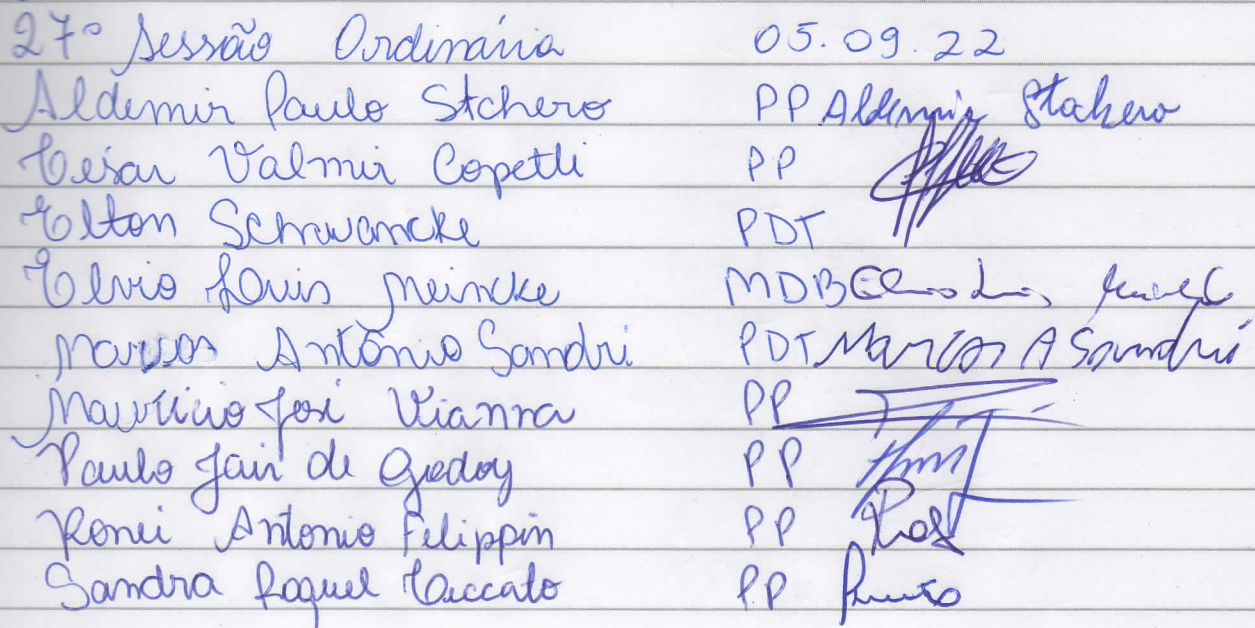 27° Sessão Ordinária 05.09.22
Aldemir Paulo Stchero PP Aldemir Stchero
Cesar Valmir Copetti PP
Elton Schwancke PDT
Elvio Luis Meincke MDB
Marcos Antônio Sandri PDT Marcos A Sandri
Maurício José Vianna PP
Paulo Jair de Godoy PP
Ronei Antonio Filippin PP
Sandra Raquel Ceccato PP